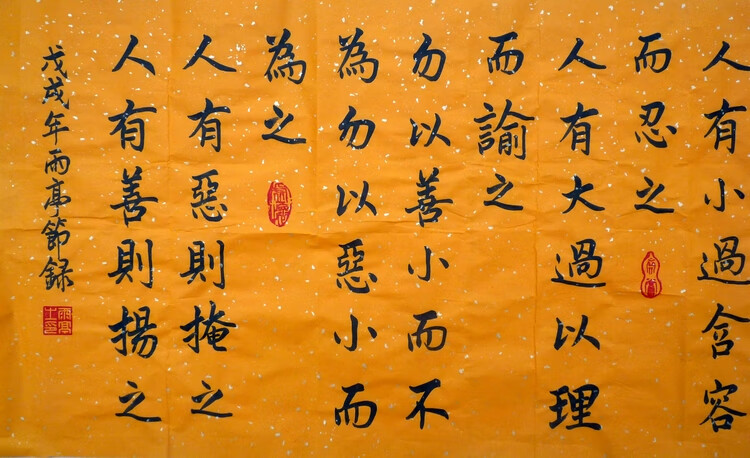 人有小過含容
而忍之
人有大過以理
而諭之
勿以善小而不
為勿以惡小而
為之
人有惡則掩之
人有善則揚之
戊戌年雨亭節録